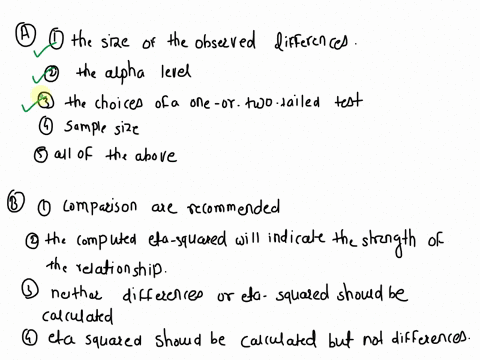 Ⓐ ① the size of the observed differences.
② the alpha level
③ the choices of a one-or-two.tailed test
④ sample size
⑤ all of the above
Ⓑ ① comparison are recommended
② the computed eta-squared will indicate the strength of
the relationship.
③ neither differences or eta-squared should be
calculated
④ eta squared should be calculated but not differences.